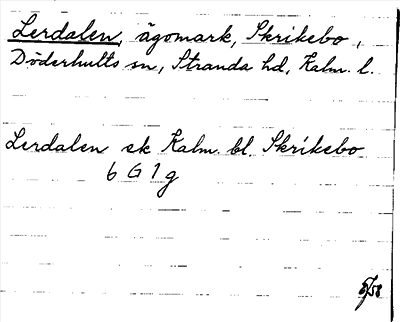 Lerdalen, ägomark, Skrikebo,
Döderhults sn, Stranda hd, Kalm. l.
Lerdalen ek Kalm. bl. Skrikebo
6 G 1 g
5/58